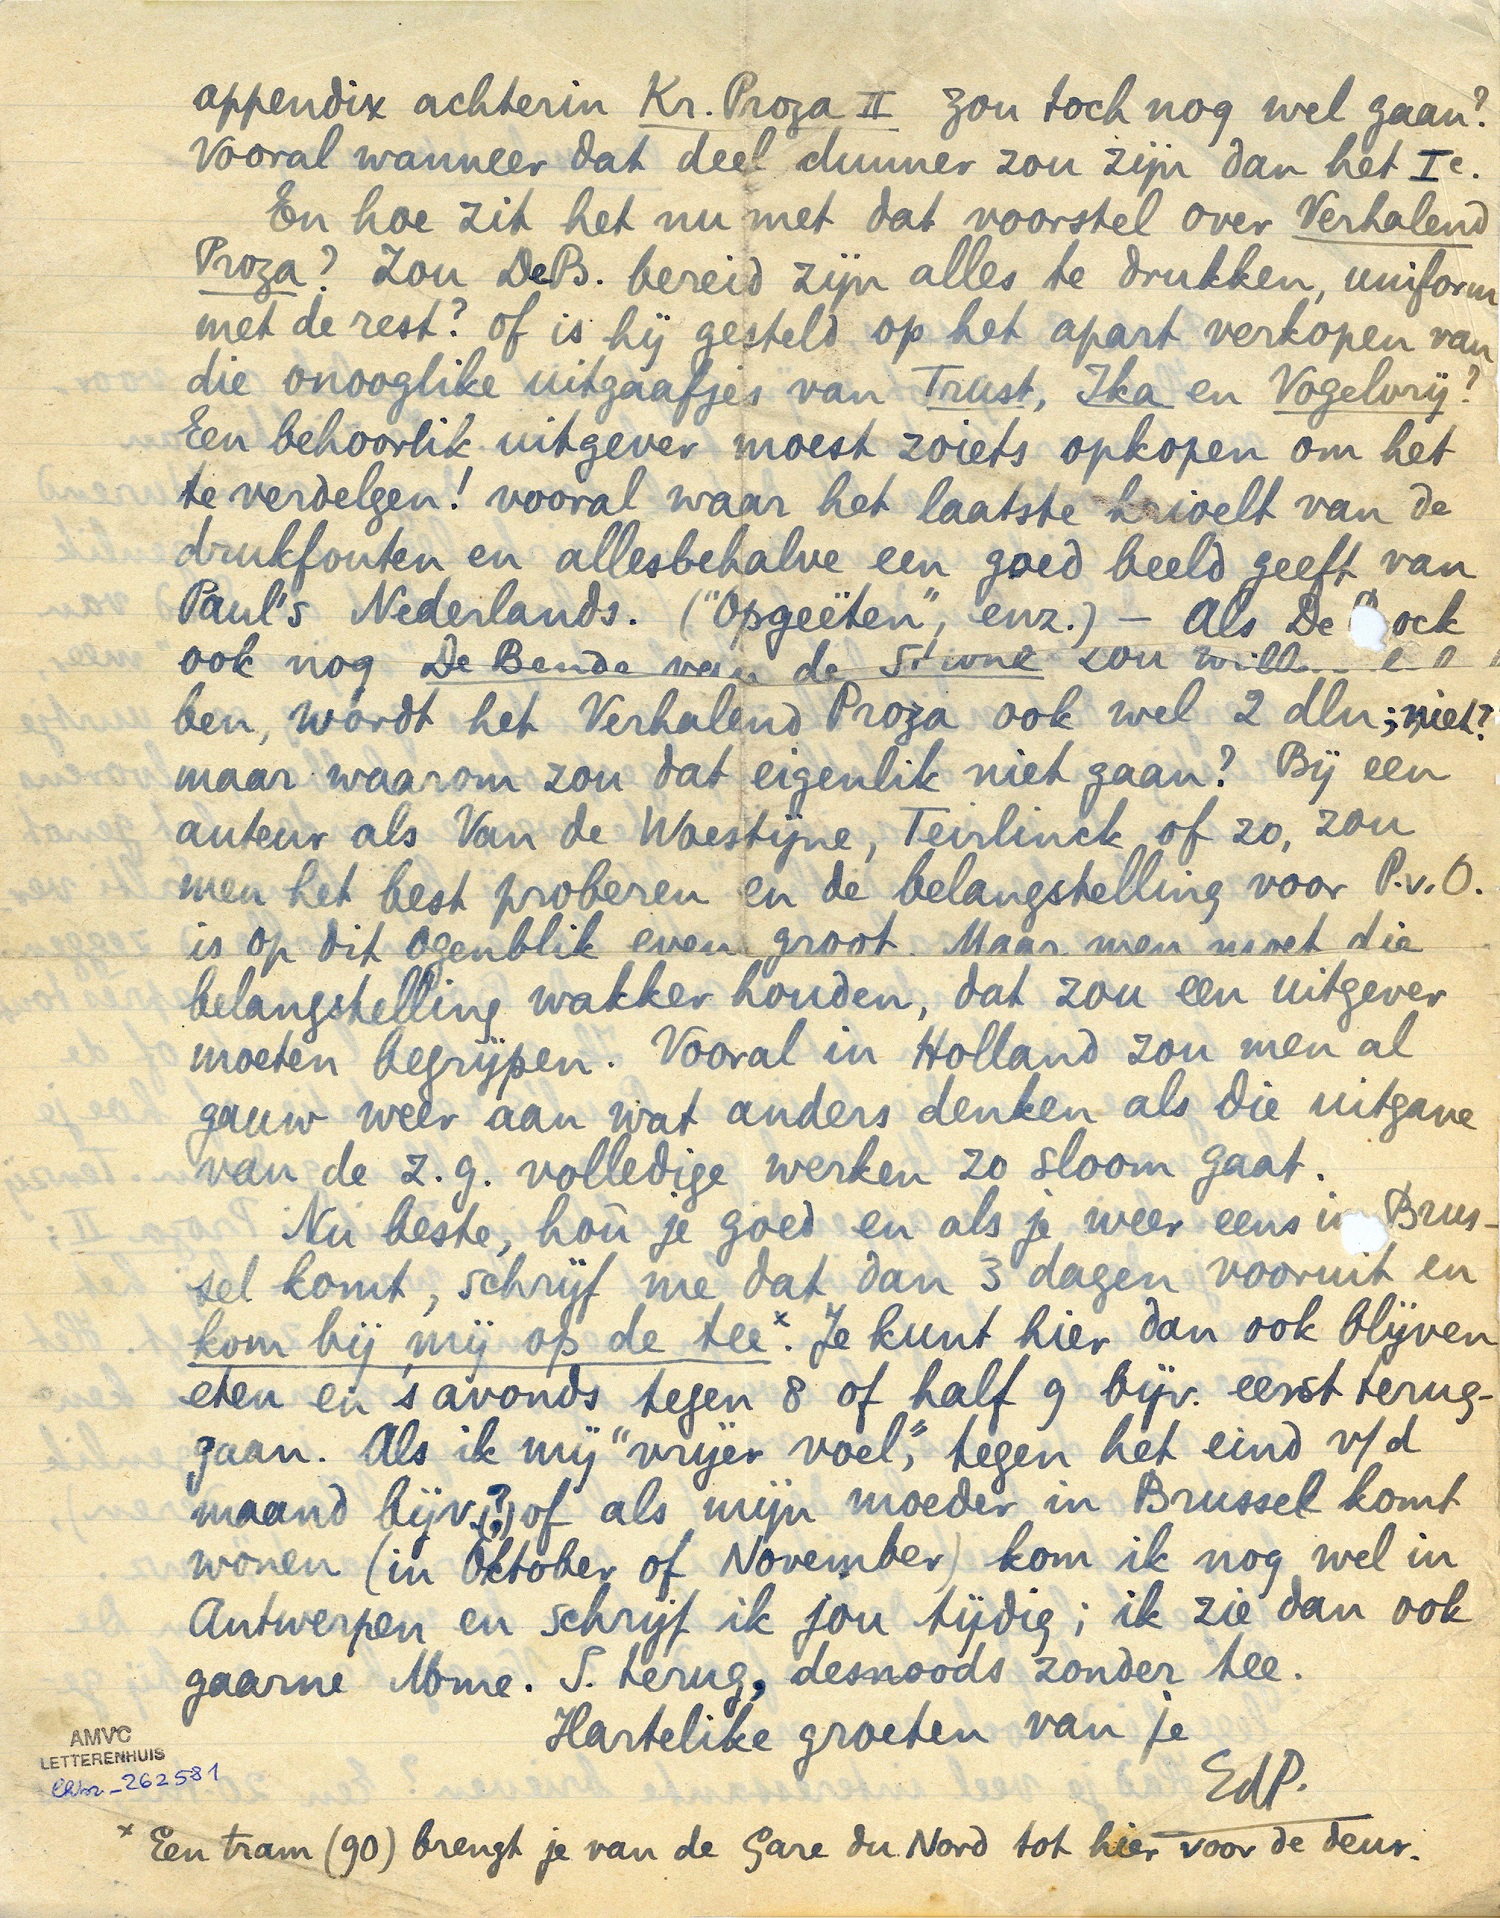 appendix achterin Kr. Proza II zou toch nog wel gaan?
Vooral wanneer dat deel dunner zou zijn dan het Ie.
En hoe zit het nu met dat voorstel over Verhalend
Proza? Zou DeB. bereid zijn alles te drukken, uniform
met de rest? of is hij gesteld op het apart verkopen van
die onooglike uitgaafjes van Trust, Ika en Vogelvrij?
Een behoorlik uitgever moest zoiets opkopen om het
te verdelgen! vooral waar het laatste krioelt van de
drukfouten en allesbehalve een goed beeld geeft van
Paul's Nederlands. ("Opgeëten", enz.) – Als De ock
ook nog De Bende van de Stronk zou
ben, wordt het Verhalend Proza ook wel 2 dln; niet?
maar waarom zou dat eigenlik niet gaan? Bij een
auteur als Van de Woestijne, Teirlinck of zo, zou
men het best proberen en de belangstelling voor P.v.O.
is op dit ogenblik even groot. Maar men moet die
belangstelling wakker houden, dat zou een uitgever
moeten begrijpen. Vooral in Holland zou men al
gauw weer aan wat anders denken als die uitgave
van de z.g. volledige werken zo sloom gaat.
Nu beste, hoû je goed en als je weer eens in Brus-
sel komt, schrijf me dat dan 3 dagen vooruit en
kom bij mij op de tee x. Je kunt hier dan ook blijven
eten en 's avonds tegen 8 of half 9 bijv. eerst terug-
gaan. Als ik mij "vrijer voel", tegen het eind v/d
maand bijv.(?) of als mijn moeder in Brussel komt
wonen (in Oktober of November) kom ik nog wel in
Antwerpen en schrijf ik jou tijdig; ik zie dan ook
gaarne Mme. S. terug, desnoods zonder tee.
Hartelike groeten van je
EdP.
AMVC
LETTERENHUIS
262581
x Een tram (90) brengt je van de Gare du Nord tot hier voor de deur.